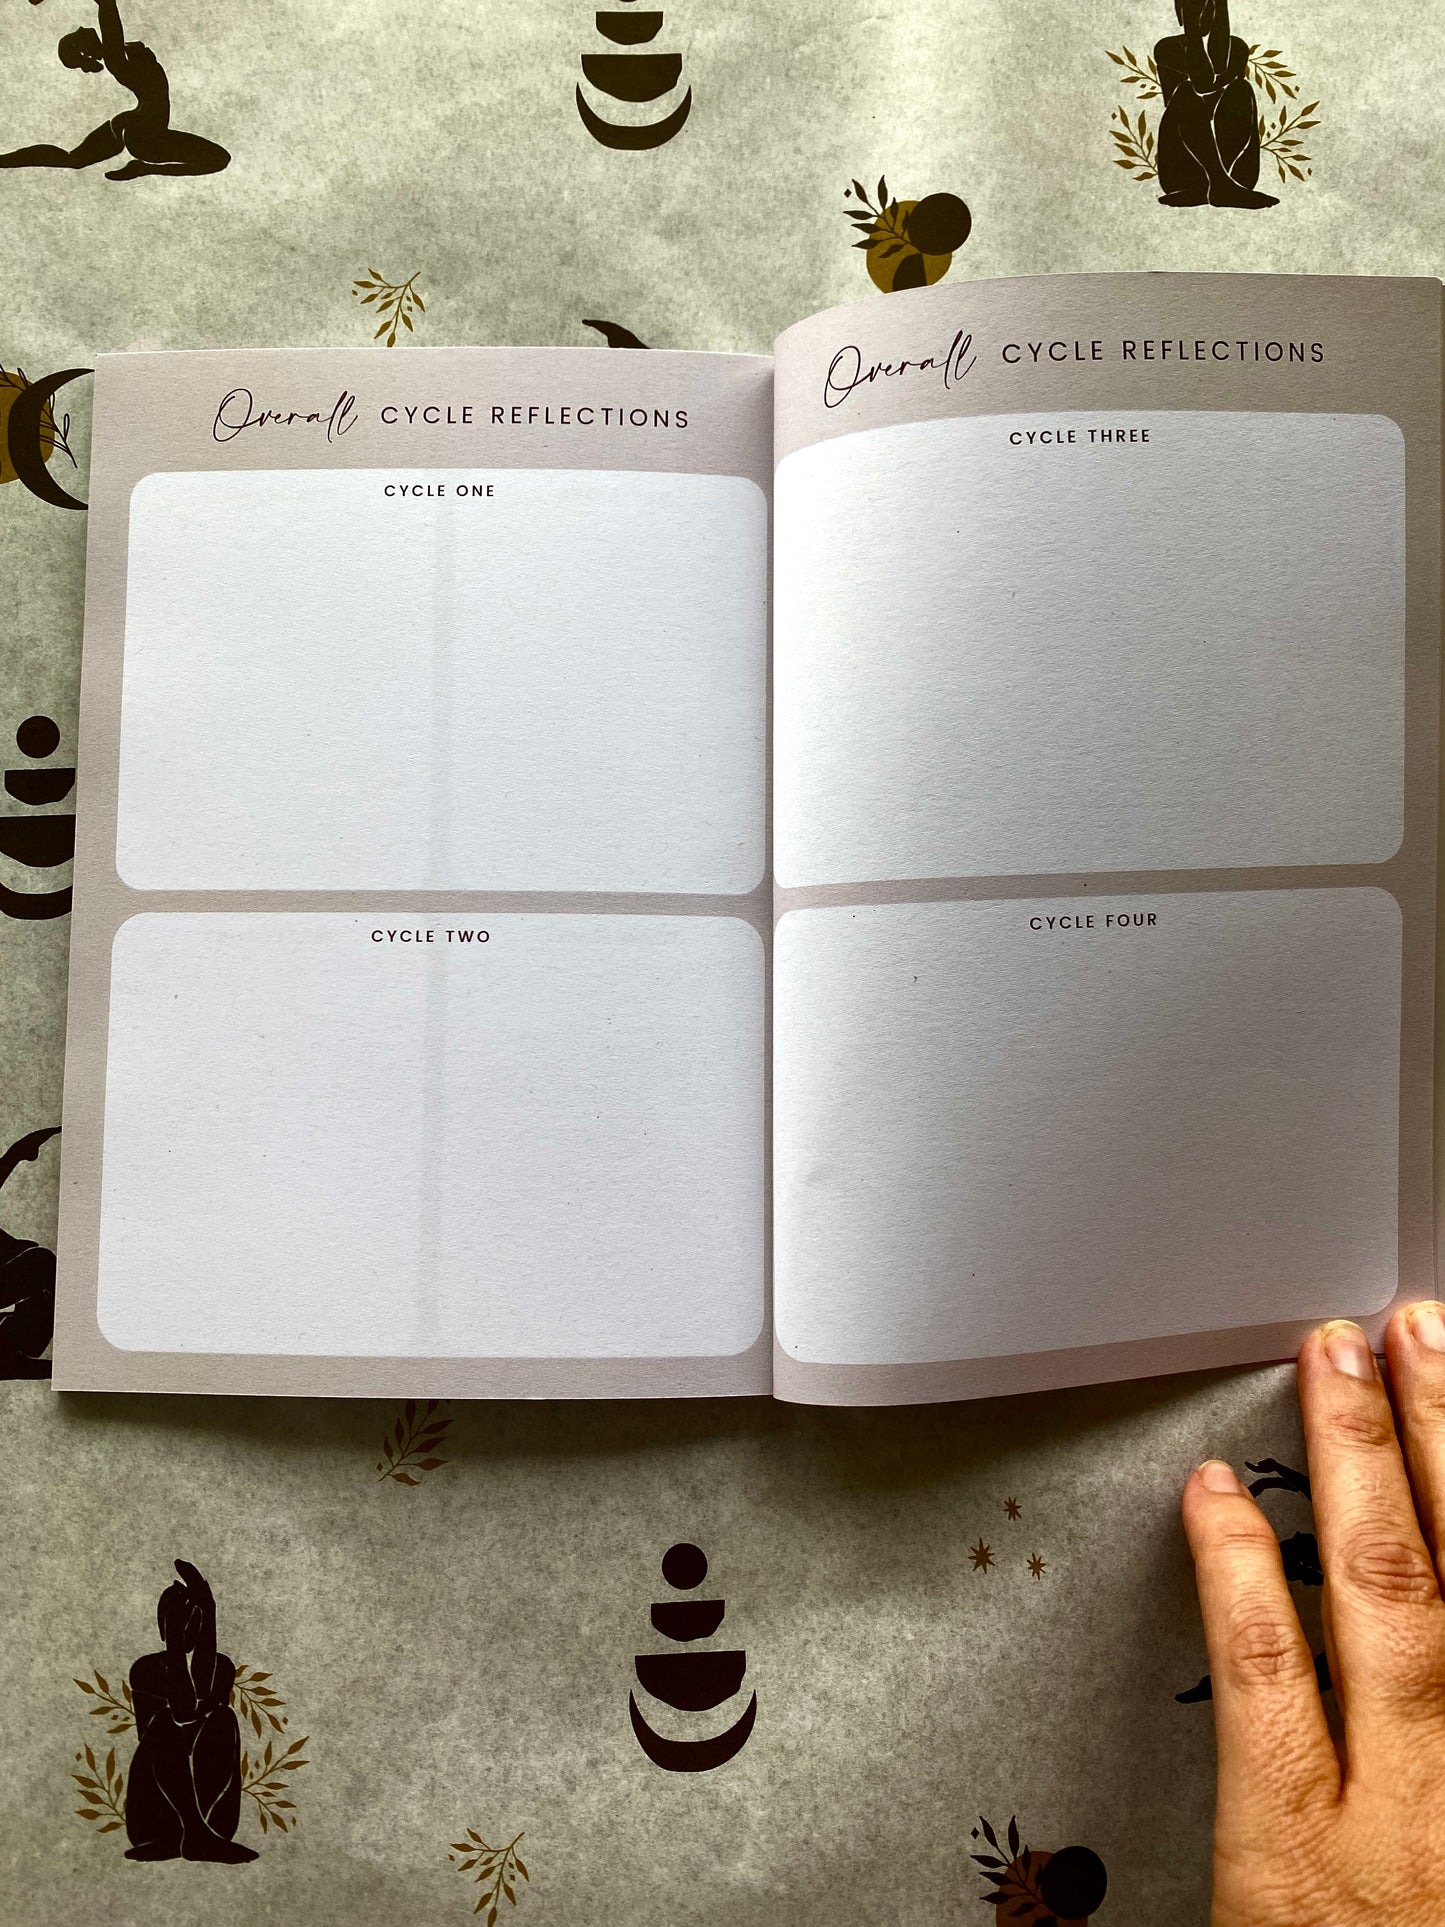 Overall CYCLE REFLECTIONS
CYCLE ONE
CYCLE TWO
Overall CYCLE REFLECTIONS
CYCLE THREE
CYCLE FOUR